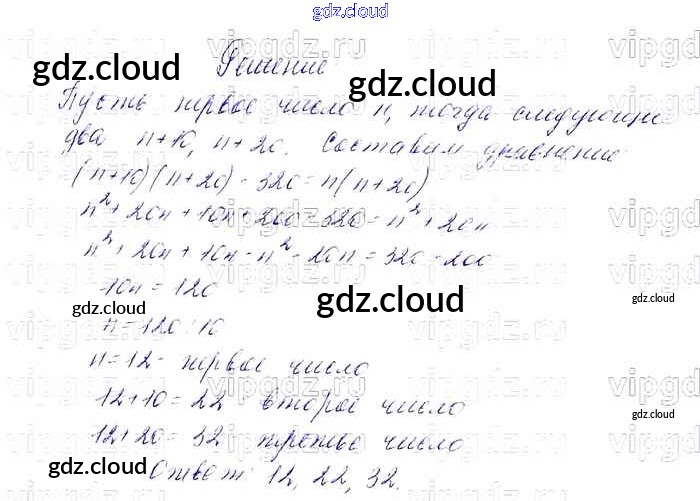 gdz.cloud
Решение
gdz.cloud gdz.cloud
Пусть первое число n, тогда следующие
два n+10, n+20. Составим уравнение
(n+10)(n+20) - 320 = n(n+20)
n²+20n+10n+200-320 = n²+20n
n²+20n+10n-n²-20n = 320-200
10n = 120
gdz.cloud gdz.cloud gdz.cloud
n = 120:10
n = 12 - первое число
12+10 = 22 второе число
gdz.cloud
12+20 = 32 третье число
gdz.cloud
Ответ: 12, 22, 32.